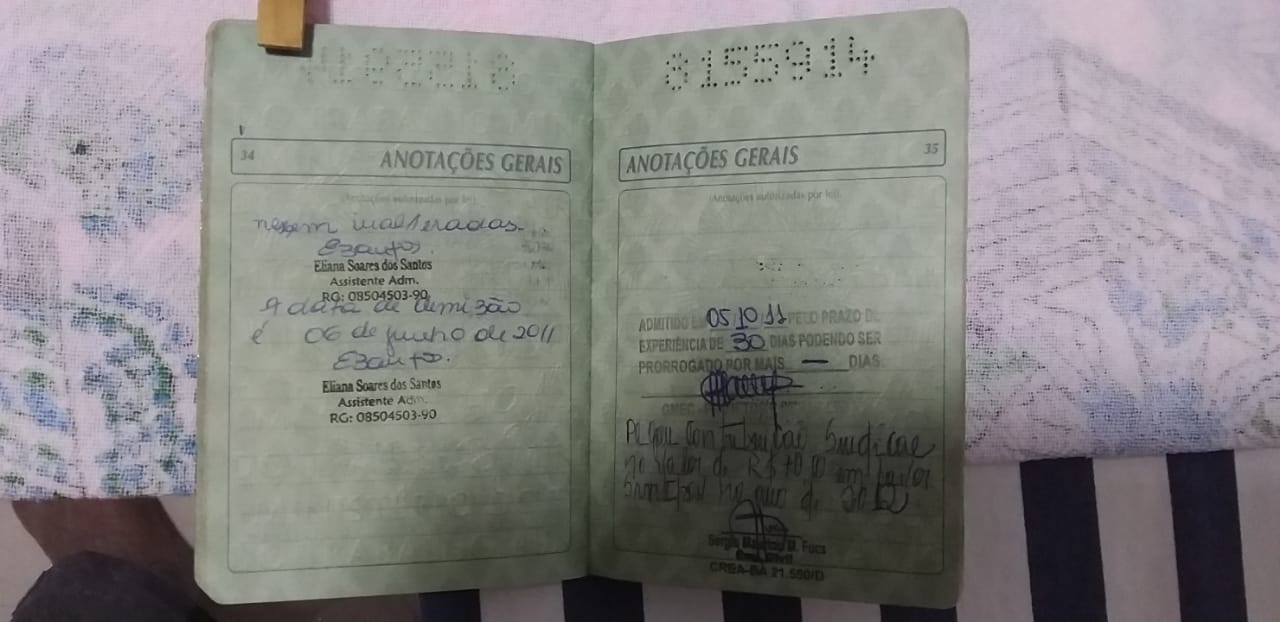 8155914
34 ANOTAÇÕES GERAIS
(Anotações autorizadas por lei)
inalteradas.
ESantos.
Eliana Soares dos Santos
Assistente Adm.
RG: 08504503-90
A data de demizão
é 06 de junho de 2011
ESantos.
Eliana Soares dos Santos
Assistente Adm.
RG: 08504503-90
ANOTAÇÕES GERAIS 35
(Anotações autorizadas por lei)
ADMITIDO 05 10 11 PELO PRAZO DE
EXPERIÊNCIA DE 30 DIAS PODENDO SER
PRORROGADO POR MAIS — DIAS
Pagou Contribuição Sindical
no valor de R$ em favor
no ano de 2012
M. Fucs
CREA-BA 21.560/D